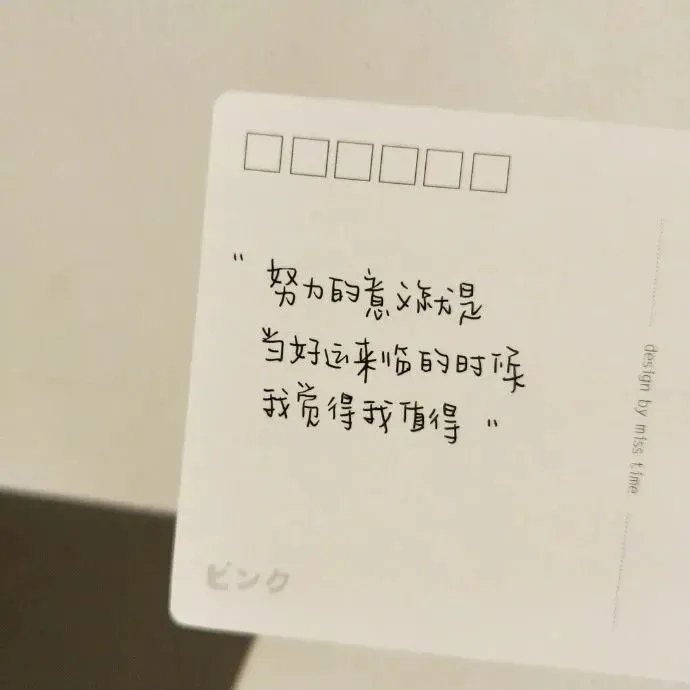 "努力的意义就是
当好运来临的时候
我觉得我值得"
design by miss time
ピンク